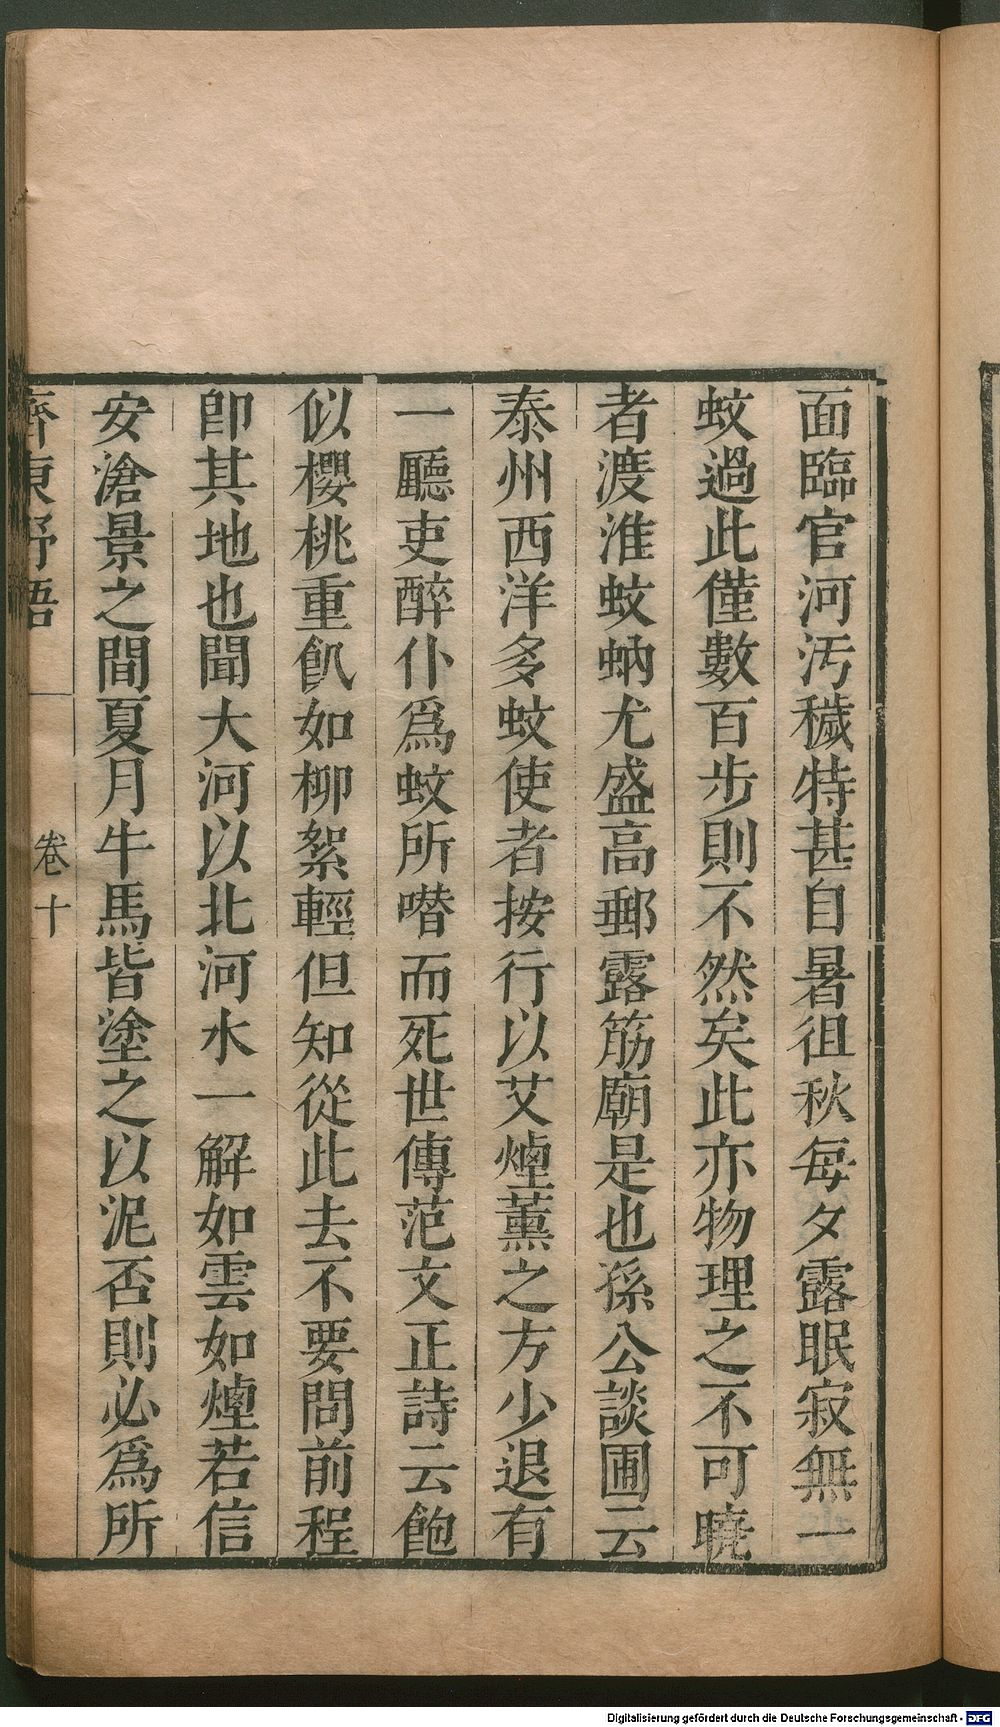 面臨官河汚穢特甚自暑徂秋每夕露眠寂無一
蚊過此僅數百步則不然矣此亦物理之不可曉
者渡淮蚊蚋尤盛高郵露筋廟是也孫公談圃云
泰州西洋多蚊使者按行以艾煙薰之方少退有
一廳吏醉仆爲蚊所噆而死世傳范文正詩云飽
似櫻桃重飢如柳絮輕但知從此去不要問前程
卽其地也聞大河以北河水一解如雲如煙若信
安滄景之間夏月牛馬皆塗之以泥否則必爲所
齊東野語
卷十
Digitalisierung gefördert durch die Deutsche Forschungsgemeinschaft - DFG